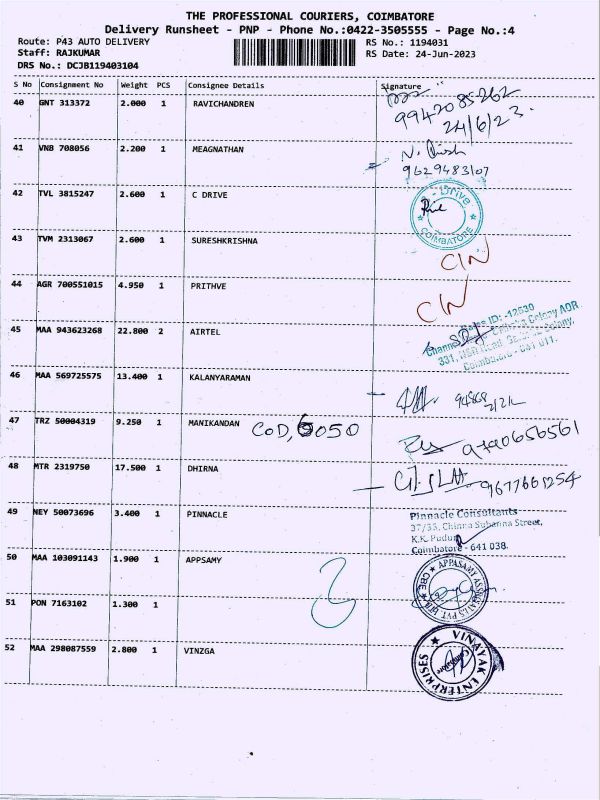 THE PROFESSIONAL COURIERS, COIMBATORE
Delivery Runsheet - PNP - Phone No.:0422-3505555 - Page No.:4
Route: P43 AUTO DELIVERY RS No.: 1194031
Staff: RAJKUMAR RS Date: 24-Jun-2023
DRS No.: DCJB119403104
S No Consignment No Weight PCS Consignee Details Signature
40 GNT 313372 2.000 1 RAVICHANDREN
9942085262
24/6/23.
41 VNB 708056 2.200 1 MEAGNATHAN
9629483107
42 TVL 3815247 2.600 1 C DRIVE
C - Drive
COIMBATORE
43 TVM 2313067 2.600 1 SURESHKRISHNA
CIN
44 AGR 700551015 4.950 1 PRITHVE
CIN
45 MAA 943623268 22.800 2 AIRTEL
Sales ID: -12530
Colony,
Coimbatore - 641 011.
46 MAA 569725575 13.400 1 KALANYARAMAN
47 TRZ 50004319 9.250 1 MANIKANDAN COD, 6050
48 MTR 2319750 17.500 1 DHIRNA
9677661254
49 NEY 50073696 3.400 1 PINNACLE
Pinnacle Consultants
37/35, Chinna Subanna Street,
K.K. Pudur,
Coimbatore - 641 038.
50 MAA 103091143 1.900 1 APPSAMY
APPASAMY ASSOCIATES PVT LTD
CBE
51 PON 7163102 1.300 1
52 MAA 298087559 2.800 1 VINZGA
VINAYAK ENTERPRISES
Coimbatore